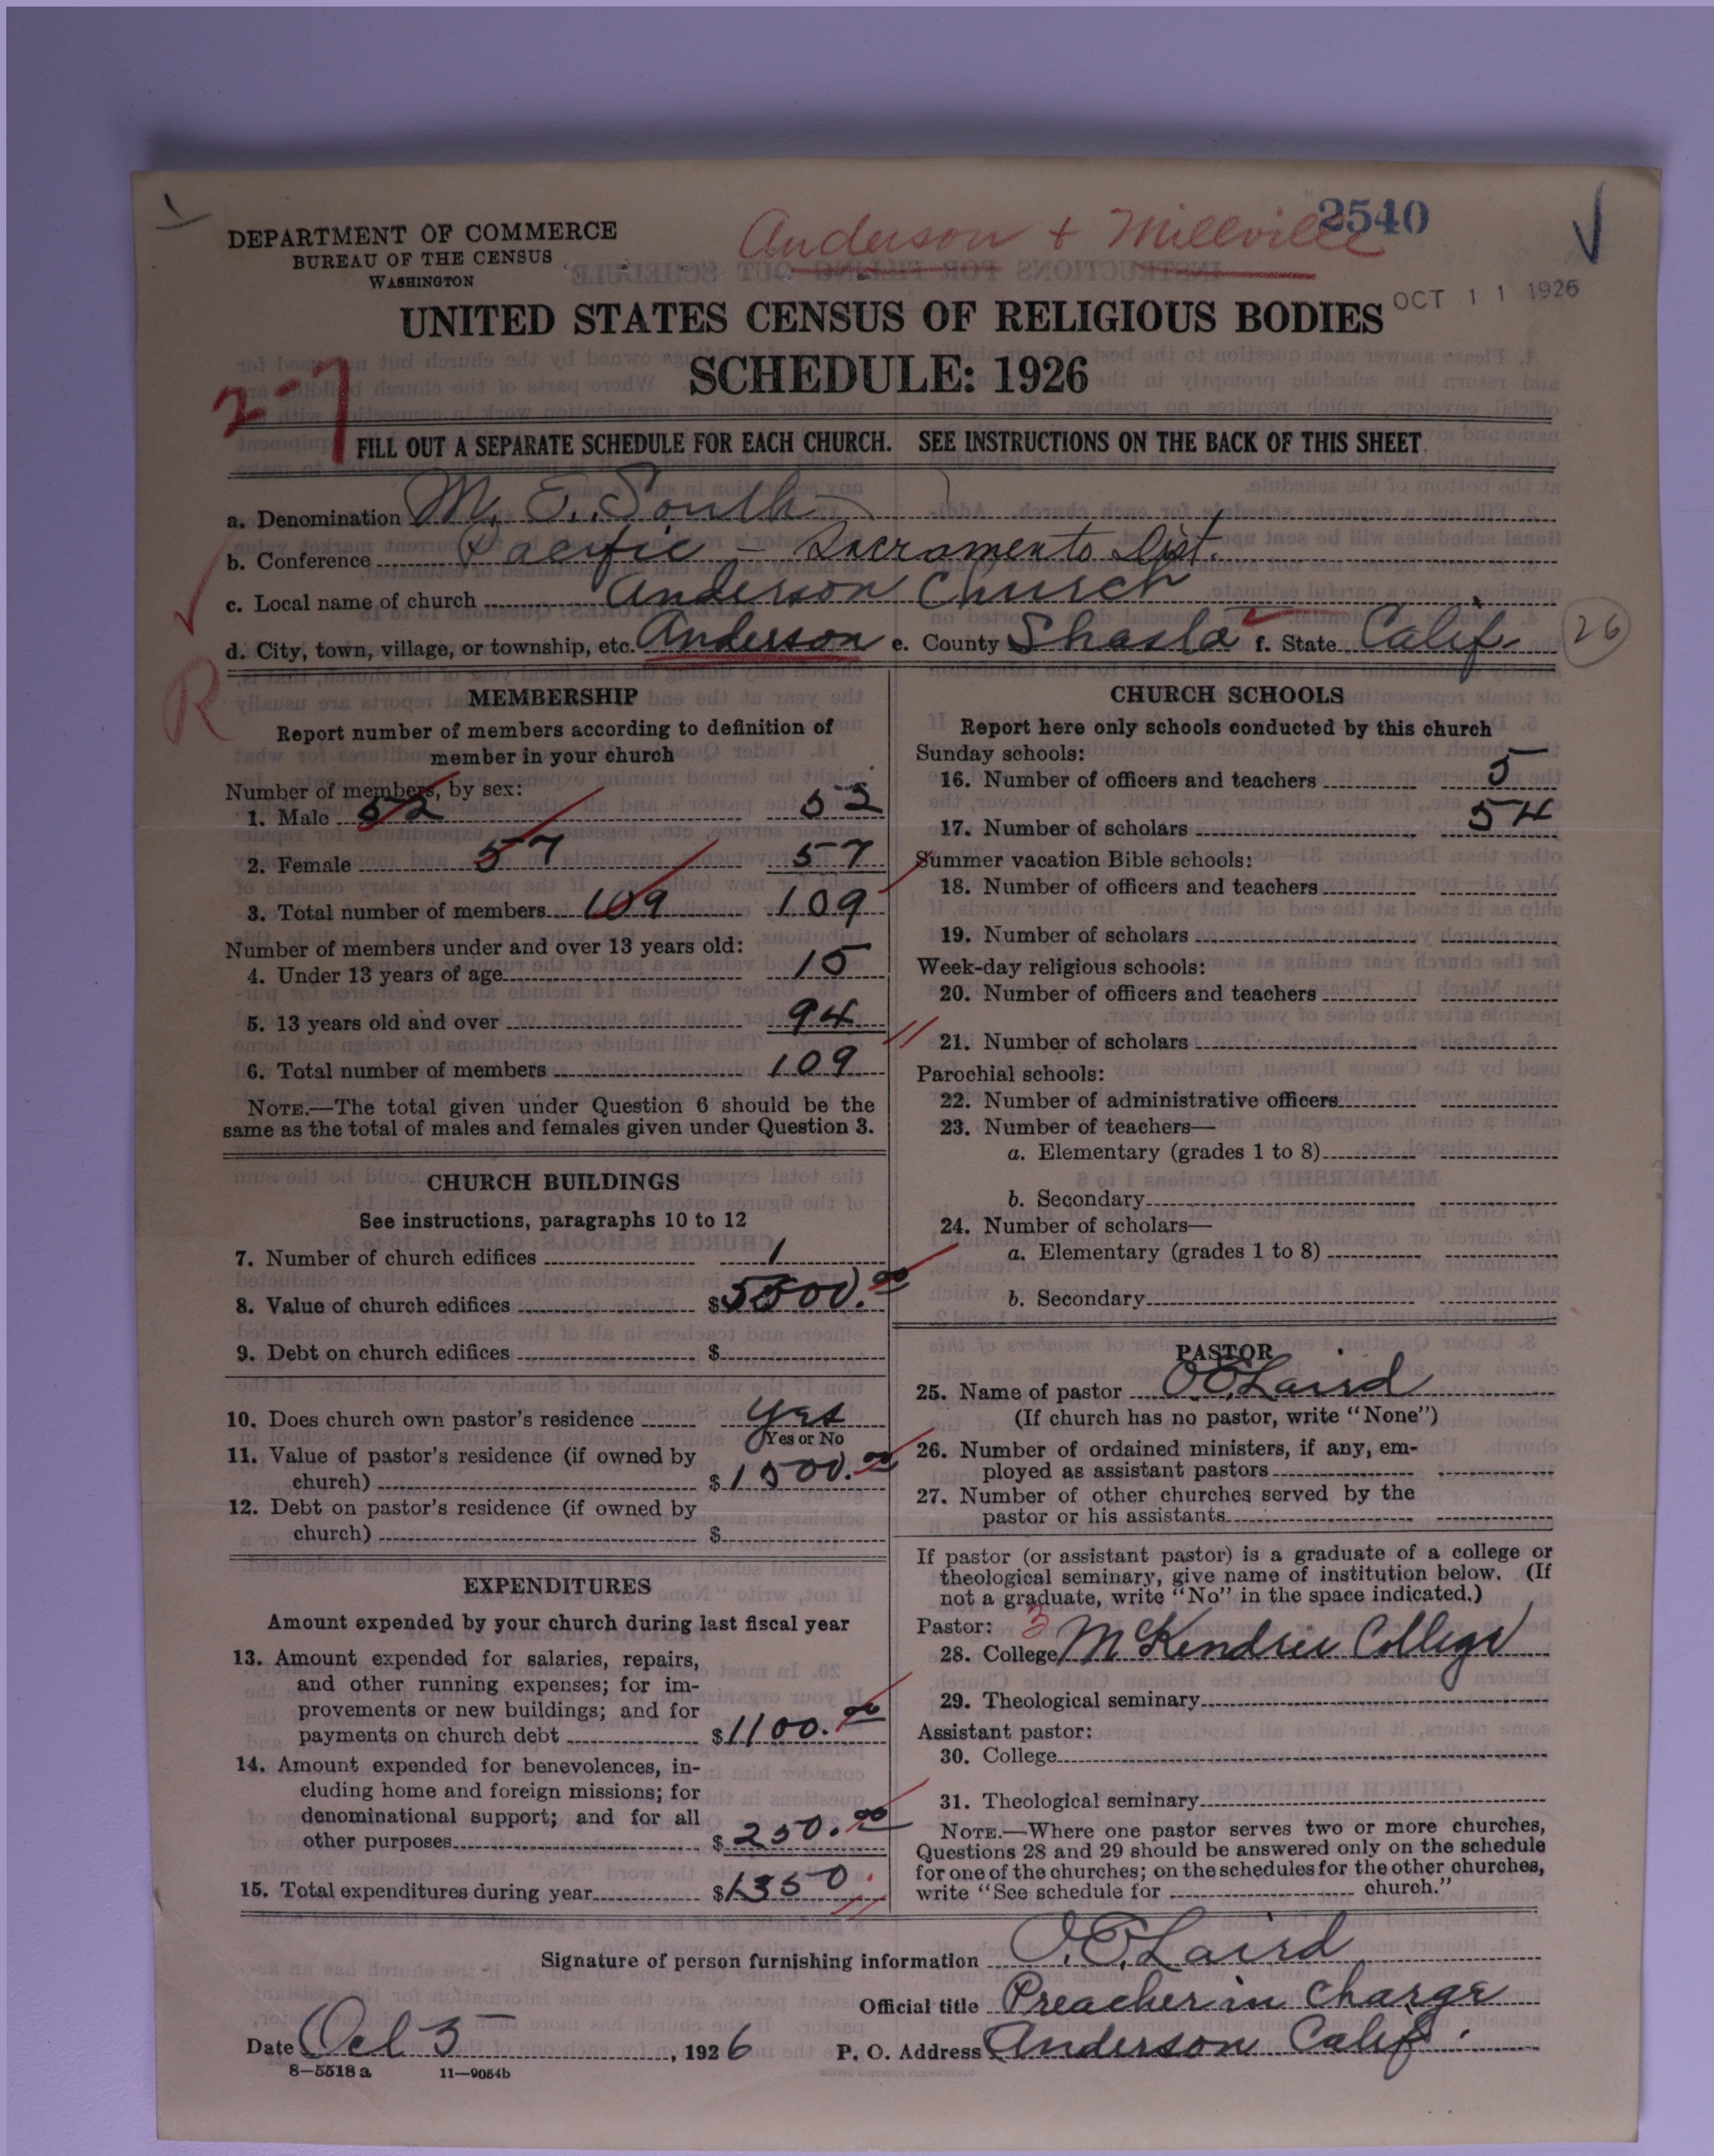 2540
Anderson + Millville
DEPARTMENT OF COMMERCE
BUREAU OF THE CENSUS
WASHINGTON
OCT 11 1926
UNITED STATES CENSUS OF RELIGIOUS BODIES
SCHEDULE: 1926
2-7
FILL OUT A SEPARATE SCHEDULE FOR EACH CHURCH. SEE INSTRUCTIONS ON THE BACK OF THIS SHEET
a. Denomination M. E. South
b. Conference Pacific - Sacramento Dist.
c. Local name of church Anderson Church
d. City, town, village, or township, etc. Anderson e. County Shasta f. State Calif
26
R
MEMBERSHIP
Report number of members according to definition of
member in your church
Number of members, by sex:
1. Male 52 52
2. Female 57 57
3. Total number of members 109 109
Number of members under and over 13 years old:
4. Under 13 years of age 15
5. 13 years old and over 94
6. Total number of members 109
NOTE.—The total given under Question 6 should be the
same as the total of males and females given under Question 3.
CHURCH BUILDINGS
See instructions, paragraphs 10 to 12
7. Number of church edifices 1
8. Value of church edifices $5500.00
9. Debt on church edifices $
10. Does church own pastor's residence Yes
Yes or No
11. Value of pastor's residence (if owned by
church) $1500.00
12. Debt on pastor's residence (if owned by
church) $
EXPENDITURES
Amount expended by your church during last fiscal year
13. Amount expended for salaries, repairs,
and other running expenses; for im-
provements or new buildings; and for
payments on church debt $1100.00
14. Amount expended for benevolences, in-
cluding home and foreign missions; for
denominational support; and for all
other purposes $250.00
15. Total expenditures during year $1350
CHURCH SCHOOLS
Report here only schools conducted by this church
Sunday schools:
16. Number of officers and teachers 5
17. Number of scholars 54
Summer vacation Bible schools:
18. Number of officers and teachers
19. Number of scholars
Week-day religious schools:
20. Number of officers and teachers
21. Number of scholars
Parochial schools:
22. Number of administrative officers
23. Number of teachers—
a. Elementary (grades 1 to 8)
b. Secondary
24. Number of scholars—
a. Elementary (grades 1 to 8)
b. Secondary
PASTOR
25. Name of pastor O E Laird
(If church has no pastor, write "None")
26. Number of ordained ministers, if any, em-
ployed as assistant pastors
27. Number of other churches served by the
pastor or his assistants
If pastor (or assistant pastor) is a graduate of a college or
theological seminary, give name of institution below. (If
not a graduate, write "No" in the space indicated.)
Pastor: 3
28. College McKendree College
29. Theological seminary
Assistant pastor:
30. College
31. Theological seminary
NOTE.—Where one pastor serves two or more churches,
Questions 28 and 29 should be answered only on the schedule
for one of the churches; on the schedules for the other churches,
write "See schedule for church."
Signature of person furnishing information O. E. Laird
Official title Preacher in charge
Date Oct 5, 1926 P. O. Address Anderson Calif.
8-5518 a 11-9054b